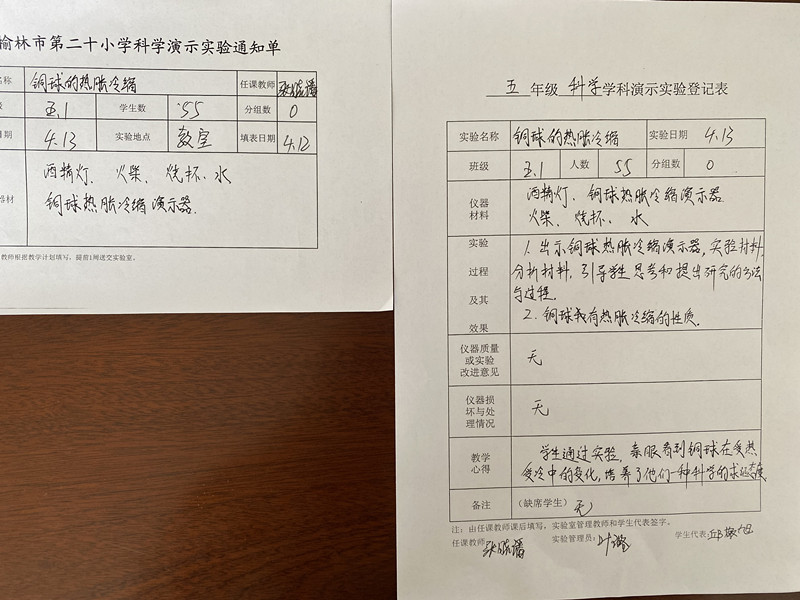 榆林市第二十小学科学演示实验通知单
名称 铜球的热胀冷缩 任课教师
级 五.1 学生数 55 分组数 0
日期 4.13 实验地点 教室 填表日期 4.12
器材 酒精灯、火柴、烧杯、水
铜球热胀冷缩演示器.
教师根据教学计划填写，提前1周送交实验室。
五 年级 科学 学科演示实验登记表
实验名称 铜球的热胀冷缩 实验日期 4.13
班级 五.1 人数 55 分组数 0
仪器材料 酒精灯、铜球热胀冷缩演示器
火柴、烧杯、水
实验过程及其效果 1.出示铜球热胀冷缩演示器，实验材料,
分析材料，引导学生思考和提出研究的方法
与过程.
2.铜球具有热胀冷缩的性质.
仪器质量或实验改进意见 无
仪器损坏与处理情况 无
教学心得 学生通过实验，亲眼看到铜球在受热
受冷中的变化,培养了他们一种科学的求证态度
备注 （缺席学生） 无
注：由任课教师课后填写，实验室管理教师和学生代表签字。
任课教师 实验管理员: 学生代表: